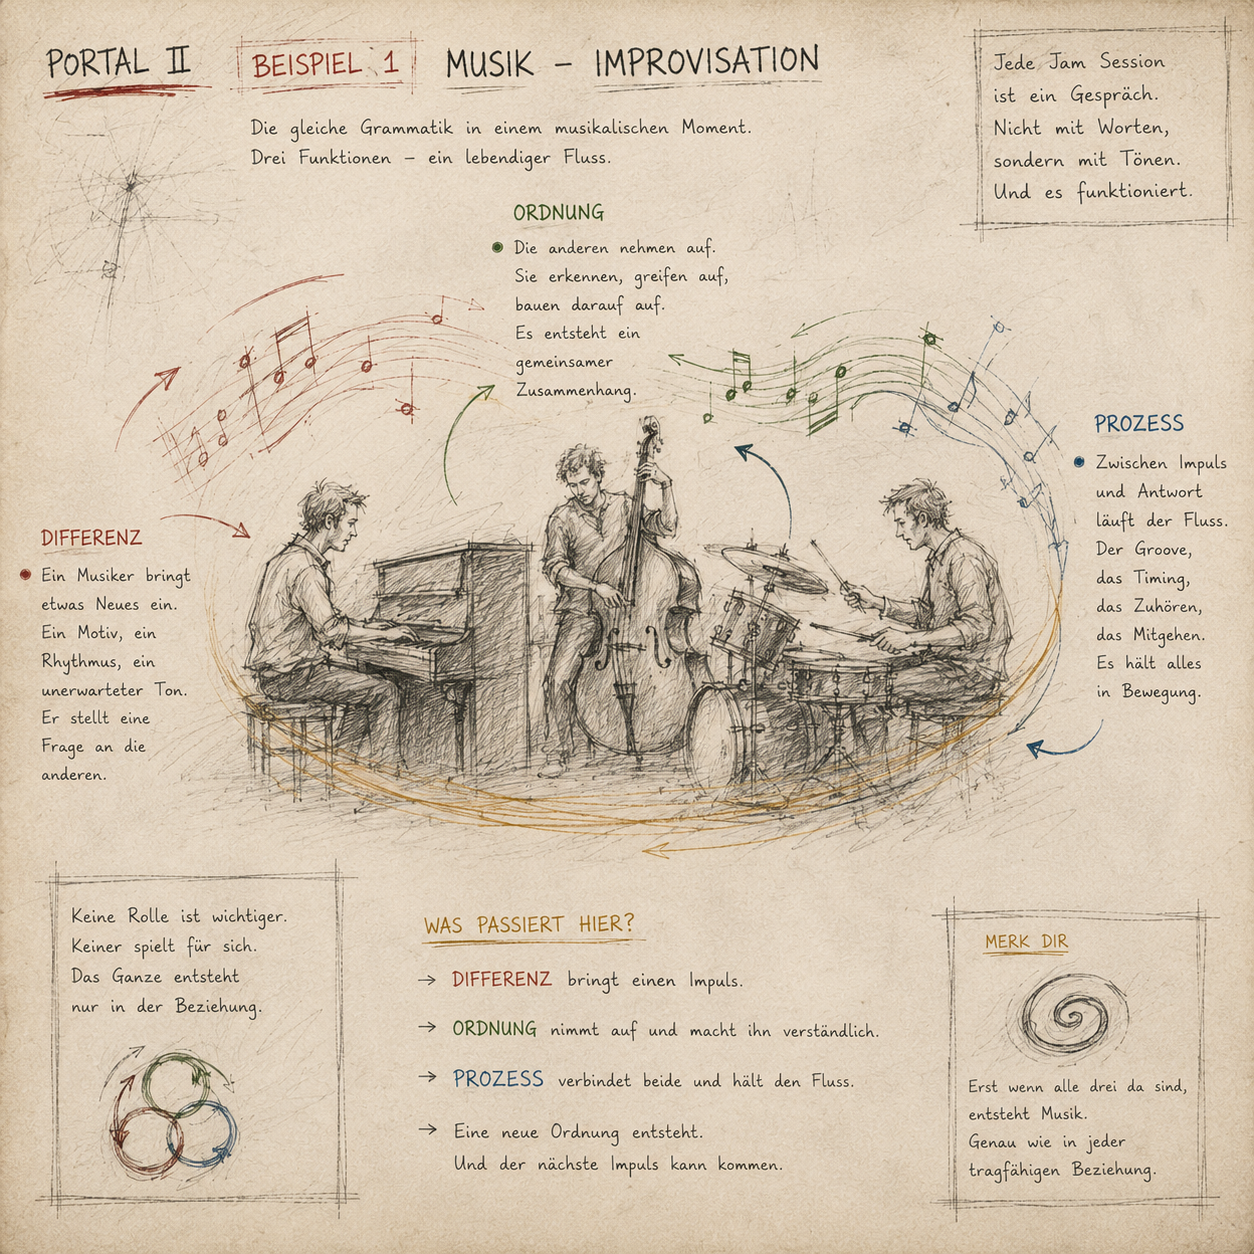 PORTAL II BEISPIEL 1 MUSIK – IMPROVISATION
Die gleiche Grammatik in einem musikalischen Moment.
Drei Funktionen – ein lebendiger Fluss.
Jede Jam Session
ist ein Gespräch.
Nicht mit Worten,
sondern mit Tönen.
Und es funktioniert.
ORDNUNG
Die anderen nehmen auf.
Sie erkennen, greifen auf,
bauen darauf auf.
Es entsteht ein
gemeinsamer
Zusammenhang.
DIFFERENZ
Ein Musiker bringt
etwas Neues ein.
Ein Motiv, ein
Rhythmus, ein
unerwarteter Ton.
Er stellt eine
Frage an die
anderen.
PROZESS
Zwischen Impuls
und Antwort
läuft der Fluss.
Der Groove,
das Timing,
das Zuhören,
das Mitgehen.
Es hält alles
in Bewegung.
Keine Rolle ist wichtiger.
Keiner spielt für sich.
Das Ganze entsteht
nur in der Beziehung.
WAS PASSIERT HIER?
→ DIFFERENZ bringt einen Impuls.
→ ORDNUNG nimmt auf und macht ihn verständlich.
→ PROZESS verbindet beide und hält den Fluss.
→ Eine neue Ordnung entsteht.
Und der nächste Impuls kann kommen.
MERK DIR
Erst wenn alle drei da sind,
entsteht Musik.
Genau wie in jeder
tragfähigen Beziehung.